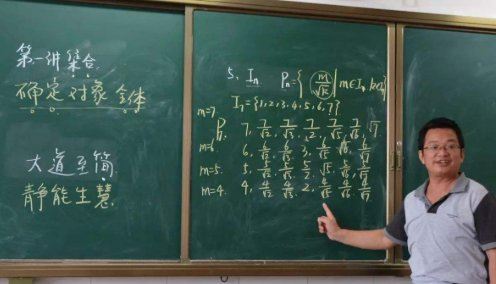 第一讲 集合
确定 对象 全体
大道至简
静能生慧
5、Iₙ Pₙ={ m/√k | m∈Iₙ, k∈Iₙ}
I₇={1,2,3,4,5,6,7}
m=7 P₇ 7, 7/√2, 7/√3, 7/2, 7/√5, 7/√6, √7
m=6. 6, 6/√2, 6/√3, 3, 6/√5, √6, 6/√7
m=5. 5, 5/√2, 5/√3, 5/2, √5, 5/√6, 5/√7
m=4. 4, 4/√2, 4/√3, 2, 4/√5, 4/√6, 4/√7